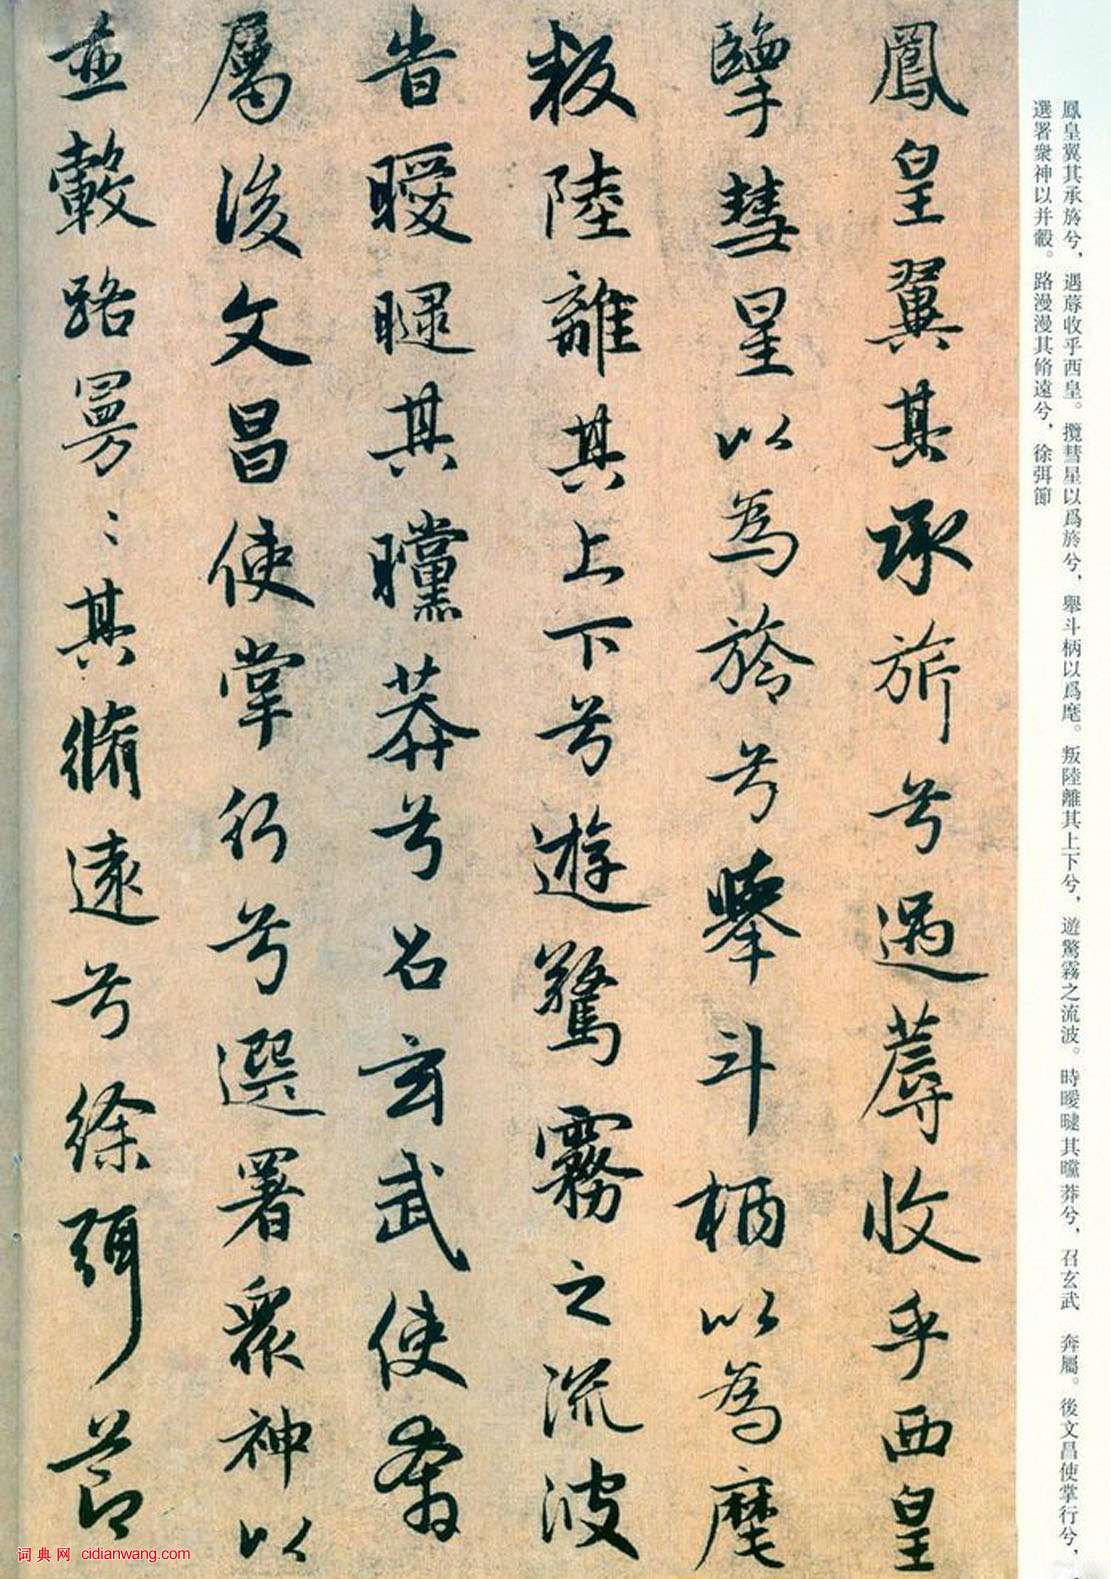 鳳皇翼其承旂兮遇蓐收乎西皇
擥彗星以為旍兮舉斗柄以為麾
叛陸離其上下兮遊驚霧之流波
旹曖曃其曭莽兮召玄武使奔
屬後文昌使掌行兮選署衆神以
並轂路曼〻其脩遠兮徐弭節
鳳皇翼其承旂兮，遇蓐收乎西皇。攬彗星以爲旍兮，舉斗柄以爲麾。叛陸離其上下兮，遊驚霧之流波。時曖曃其曭莽兮，召玄武 奔屬。後文昌使掌行兮，
選署衆神以并轂。路漫漫其脩遠兮，徐弭節
词典网 cidianwang.com